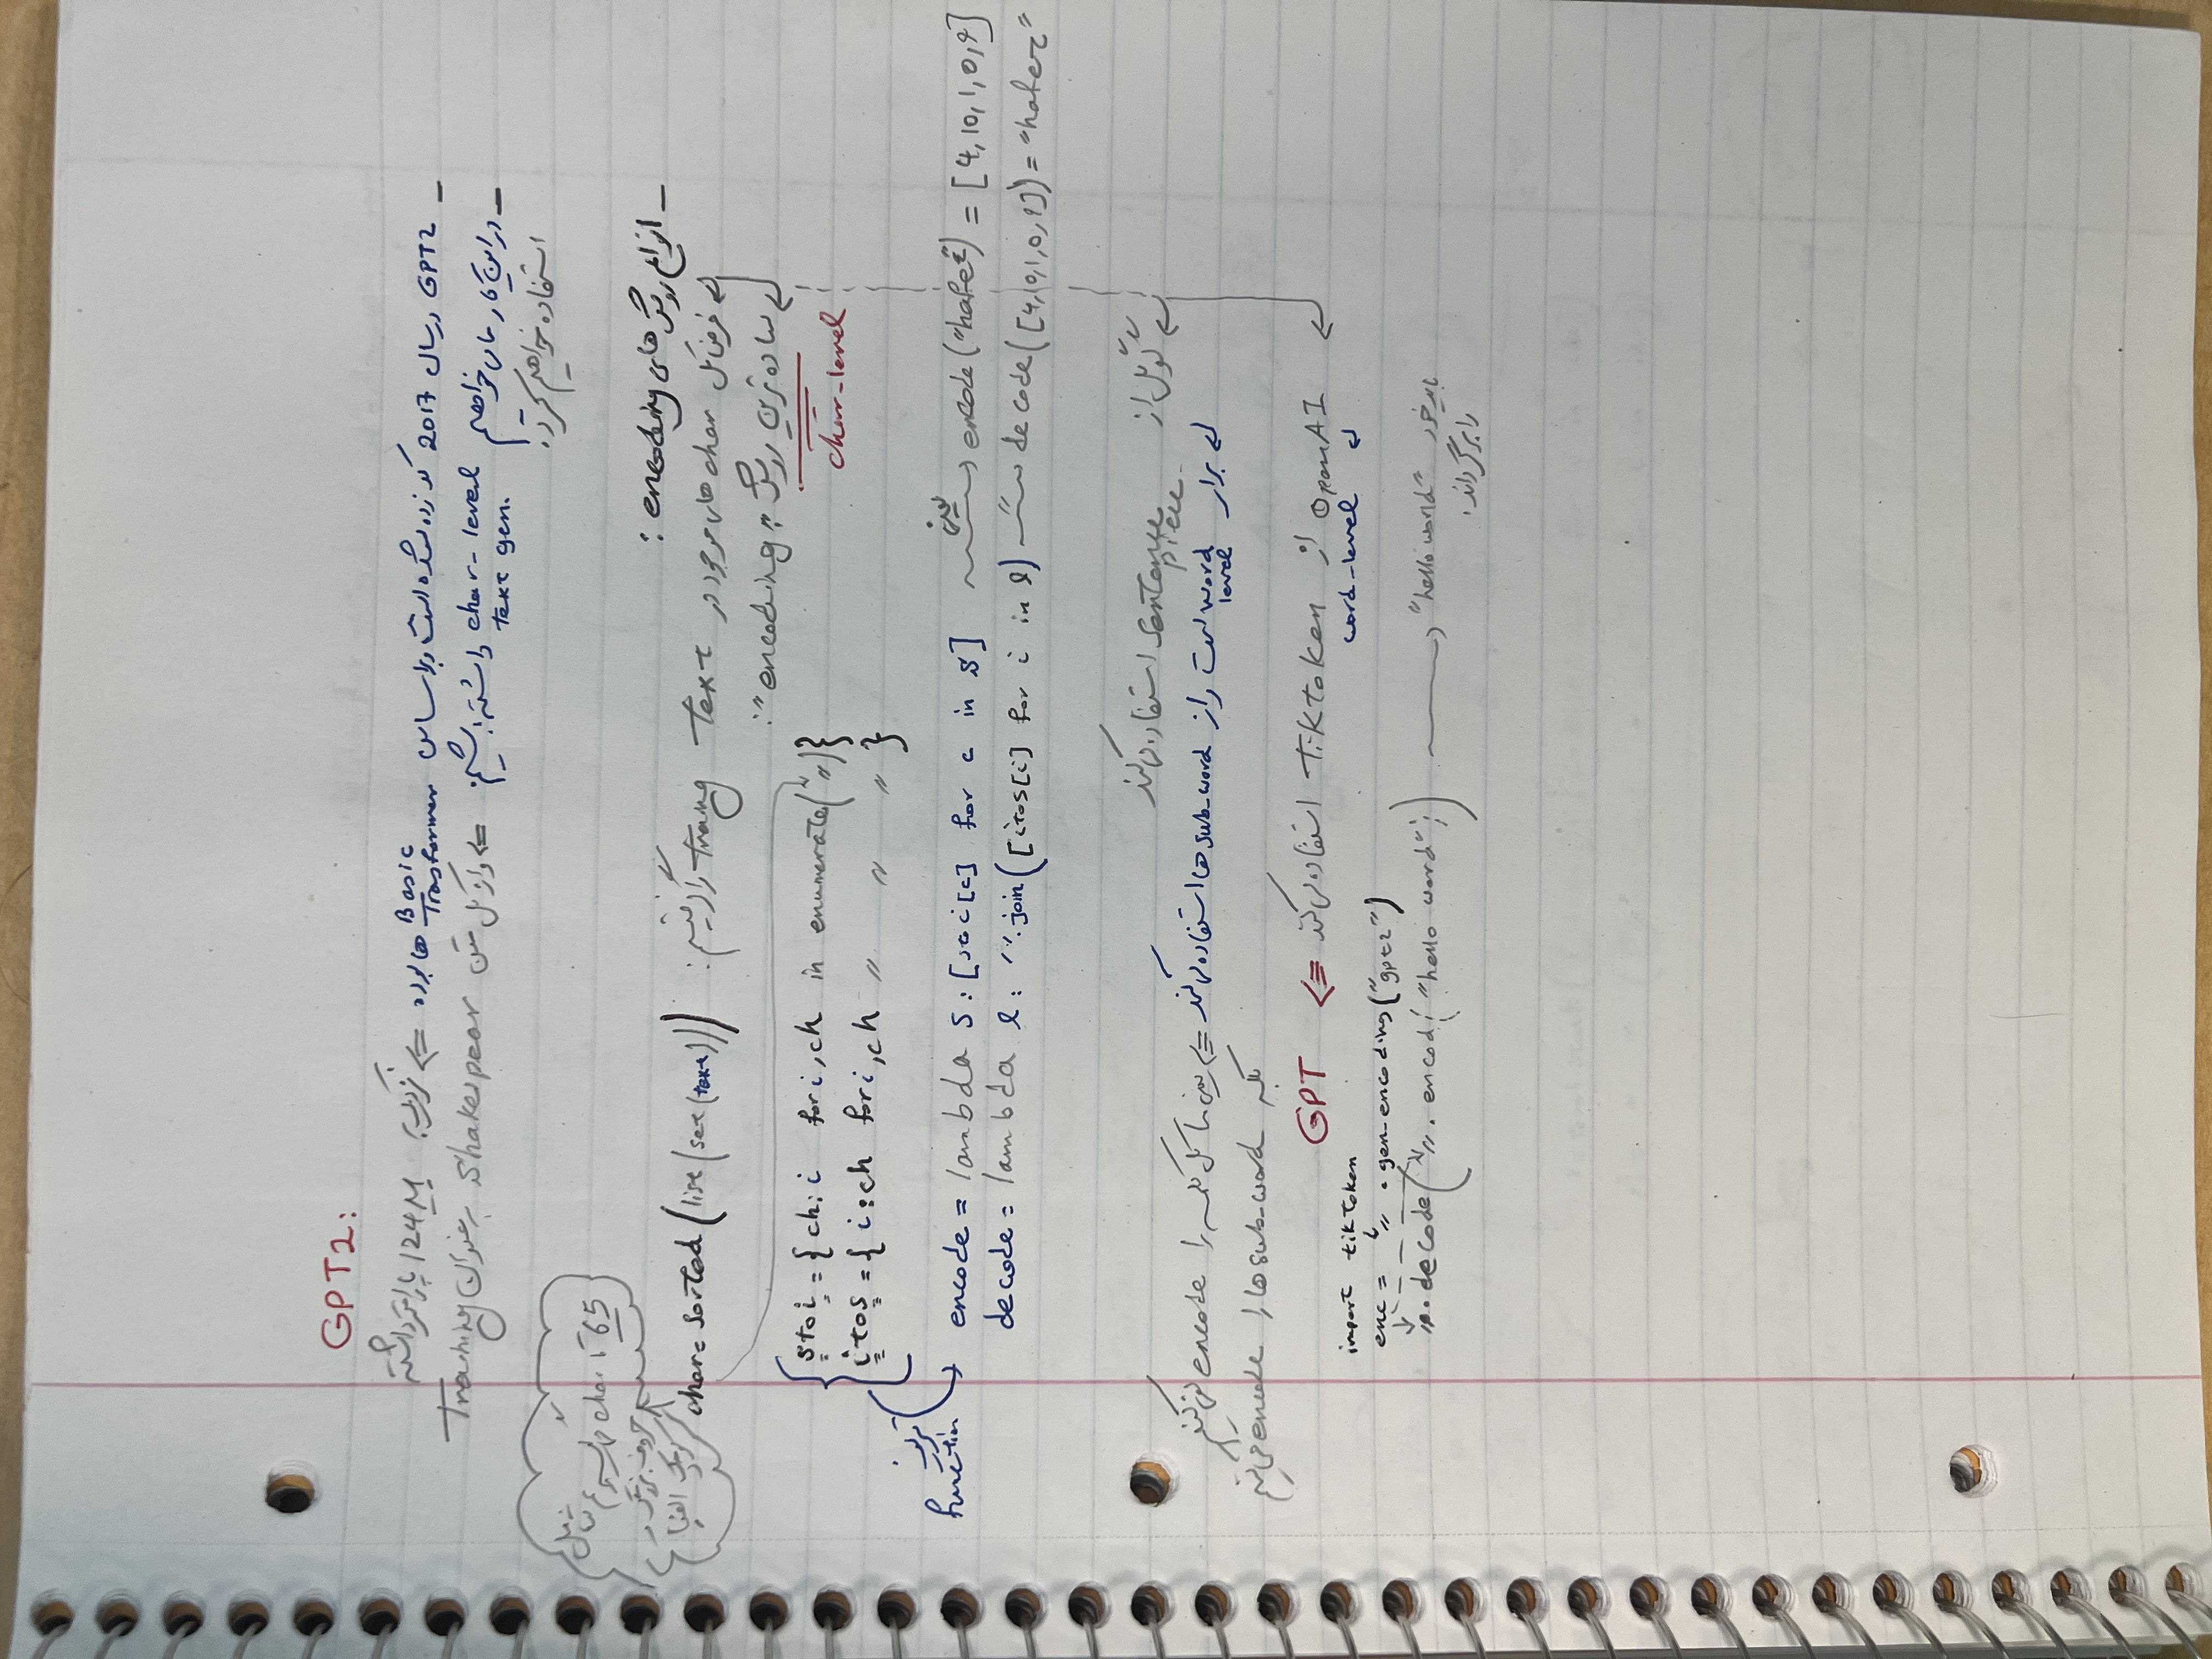 GPT2:
- GPT2 در سال 2017 کد زده شده است و بر اساس Basic Trasformer ها بوده => نزدیک به 124M پارامتر داشته
- در این کار ما می خواهیم char-level text gen. داشته باشیم. => و از کل متن Shakespear به عنوان Training
استفاده خواهیم کرد.
65 تا char شامل
حروف بزرگ و
کوچک الفبا
- انواع روش های encoding :
فرض کل char های موجود در Text Traing را گرفتیم: char= sorted(list(set(text)))
ساده ترین روش "encoding":
char-level
stoi = {ch: i for i,ch in enumerate(〃)}
itos = {i:ch for i,ch 〃 〃 〃}
function
encode = lambda s: [stoi[c] for c in s] یعنی encode("hafez") = [4,10,1,0,9]
decode = lambda l: "".join([itos[i] for i in l) decode([4,10,1,0,9]) = "hafez"
گوگل از Sentence piece استفاده می کند
برای word level است و از sub-word ها استفاده می کند => یعنی ما کل کلمه را encode نمی کنیم
بلکه sub-word ها را encode می کنیم
OpenAI از TikToken استفاده می کند => GPT
word-level
import tikToken
enc = 〃 . gen-encoding("gpt2")
〃.decode(〃. encod("hello word")) "hello world" باید خود
را برگرداند.